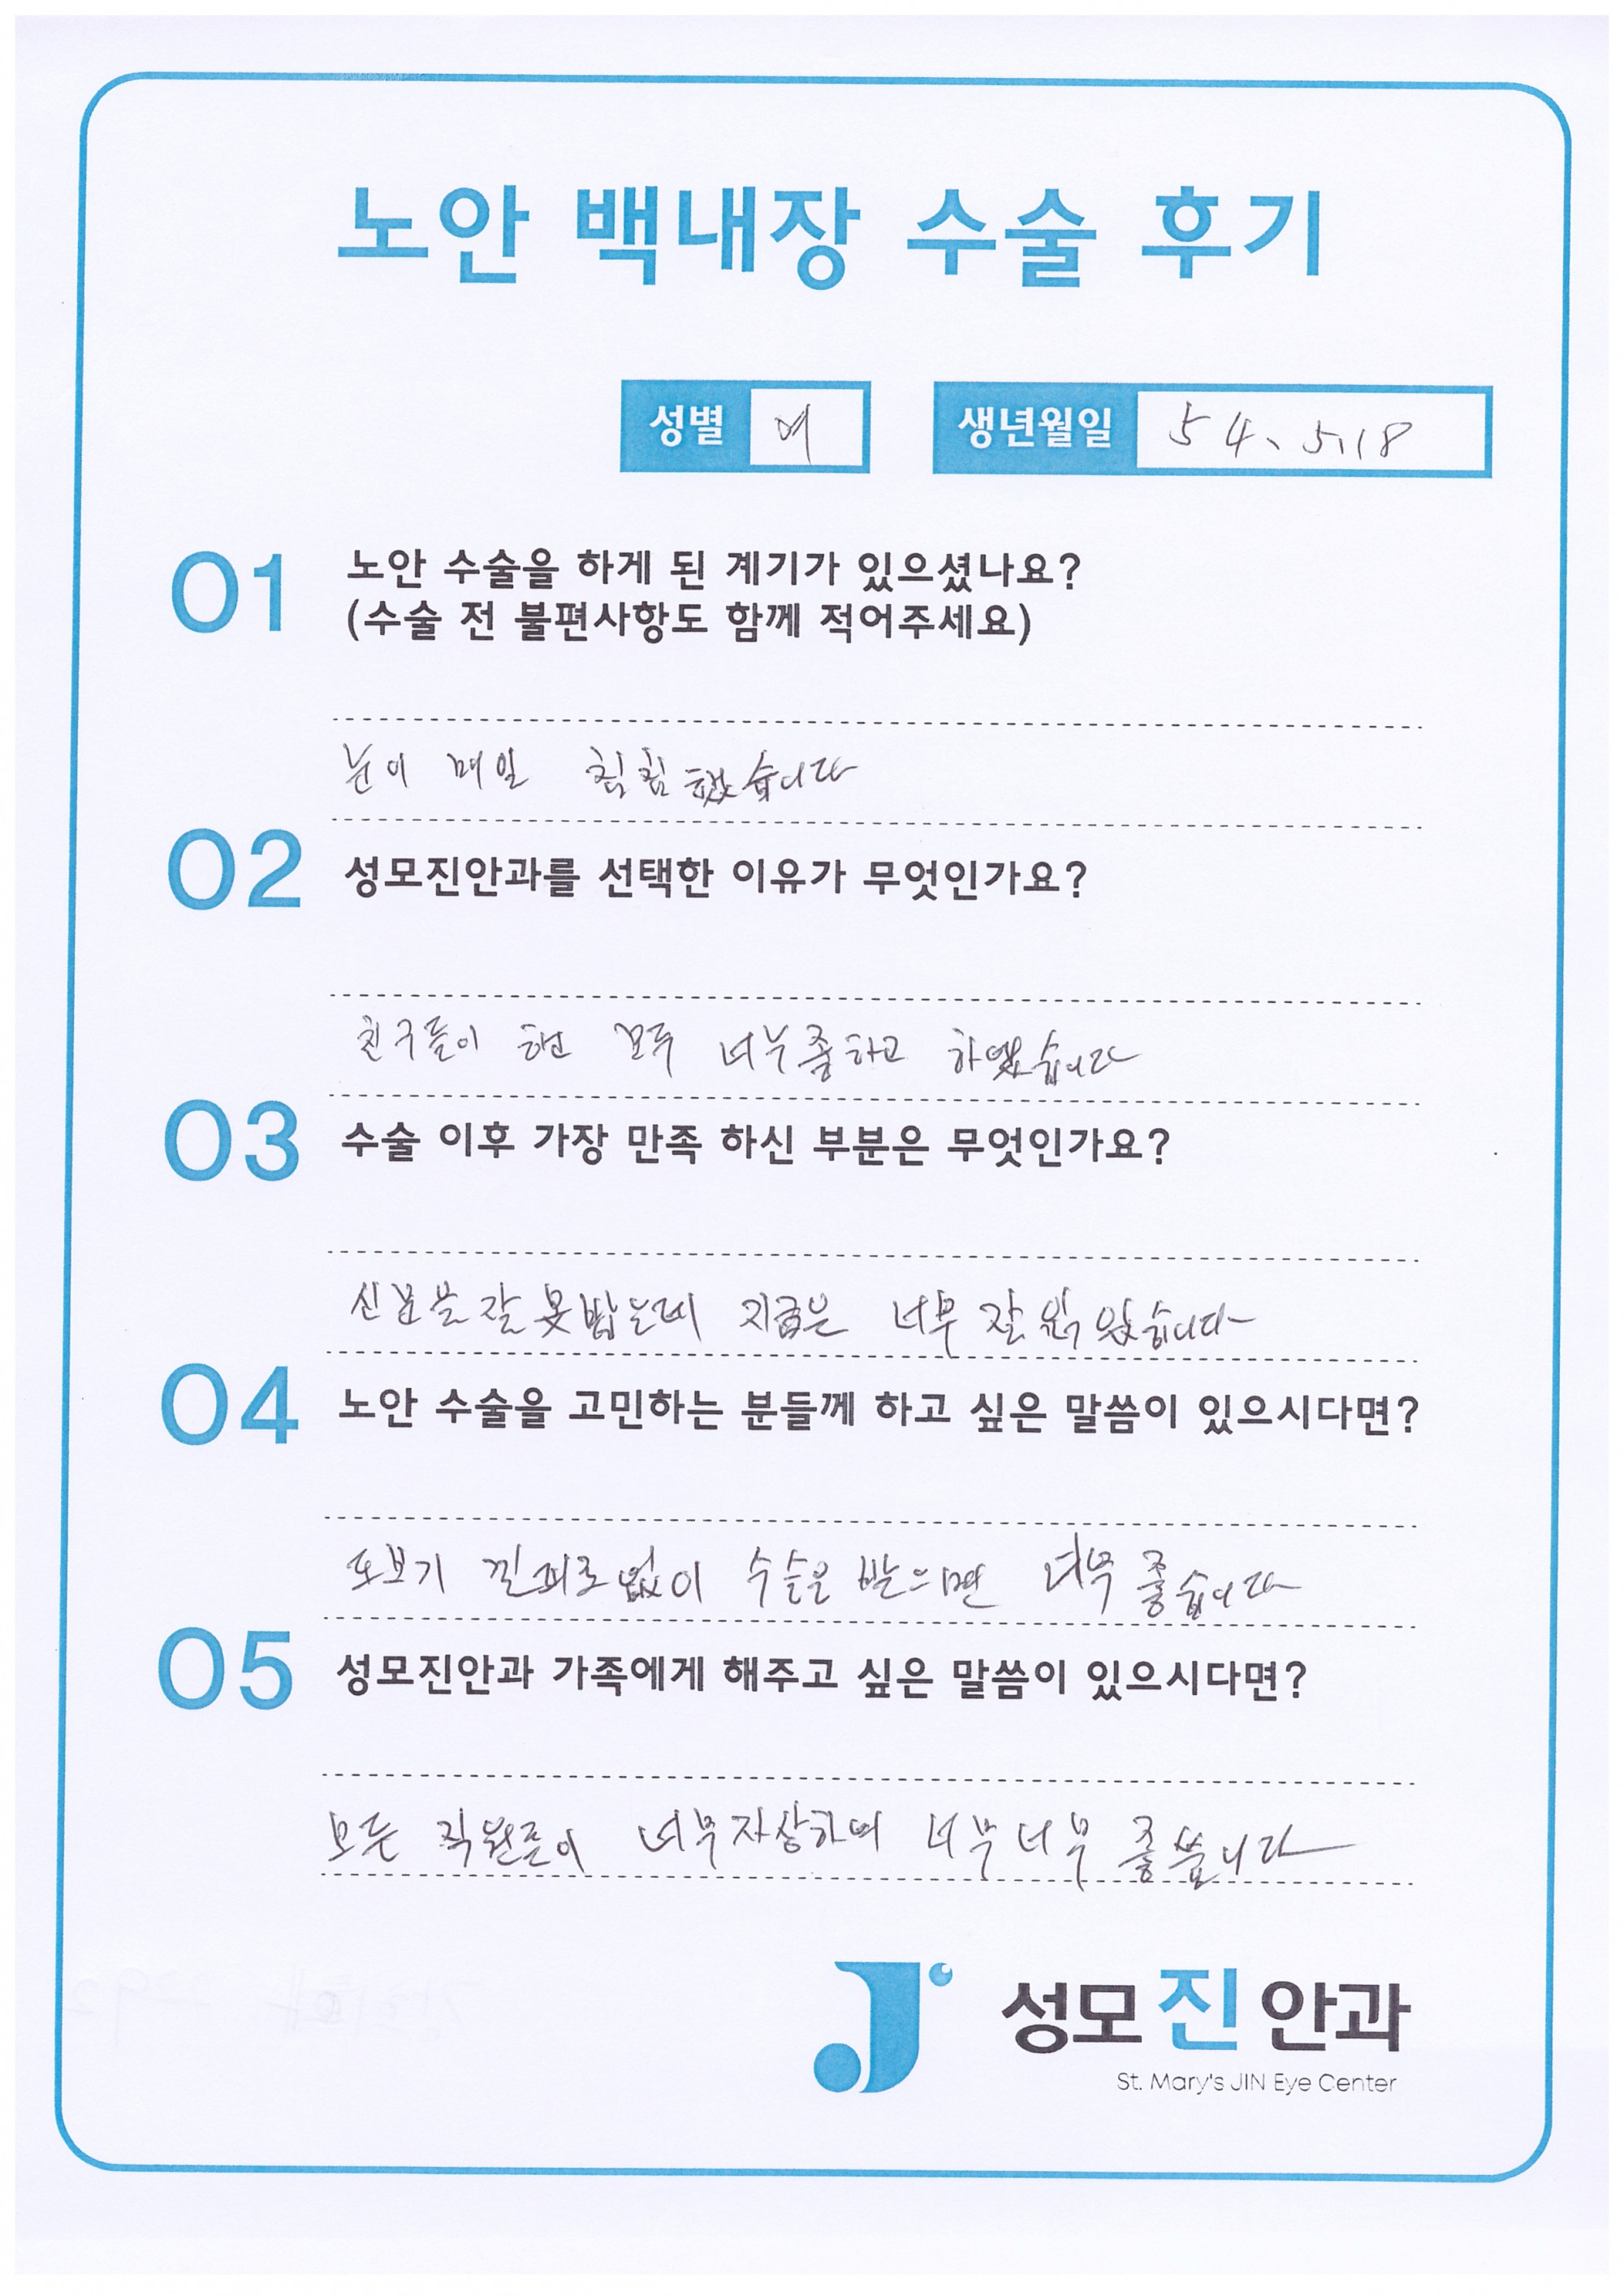 노안 백내장 수술 후기
성별 여 생년월일 54. 5.18
01 노안 수술을 하게 된 계기가 있으셨나요?
(수술 전 불편사항도 함께 적어주세요)
눈이 매일 침침했습니다
02 성모진안과를 선택한 이유가 무엇인가요?
친구들이 하고 모두 너무 좋하고 하였습니다
03 수술 이후 가장 만족 하신 부분은 무엇인가요?
신문을 잘 못 밨는데 지금은 너무 잘 읽 있습니다
04 노안 수술을 고민하는 분들께 하고 싶은 말씀이 있으시다면?
도보기 낄 피로 없이 수술을 받으면 너무 좋습니다
05 성모진안과 가족에게 해주고 싶은 말씀이 있으시다면?
모든 직원들이 너무 자상하며 너무 너무 좋씁니다
성모진안과
St. Mary's JIN Eye Center